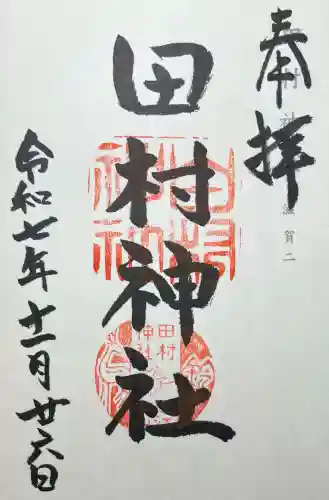 奉拝
田村神社
令和七年十一月廿六日
田村
神社
滋賀二